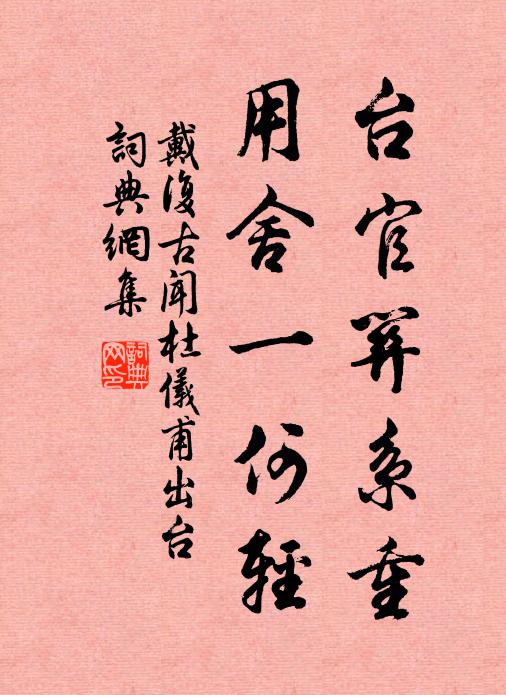 台官关系重
用舍一何輕
戴復古聞杜儀甫出台
詞典網集
詞典
网印